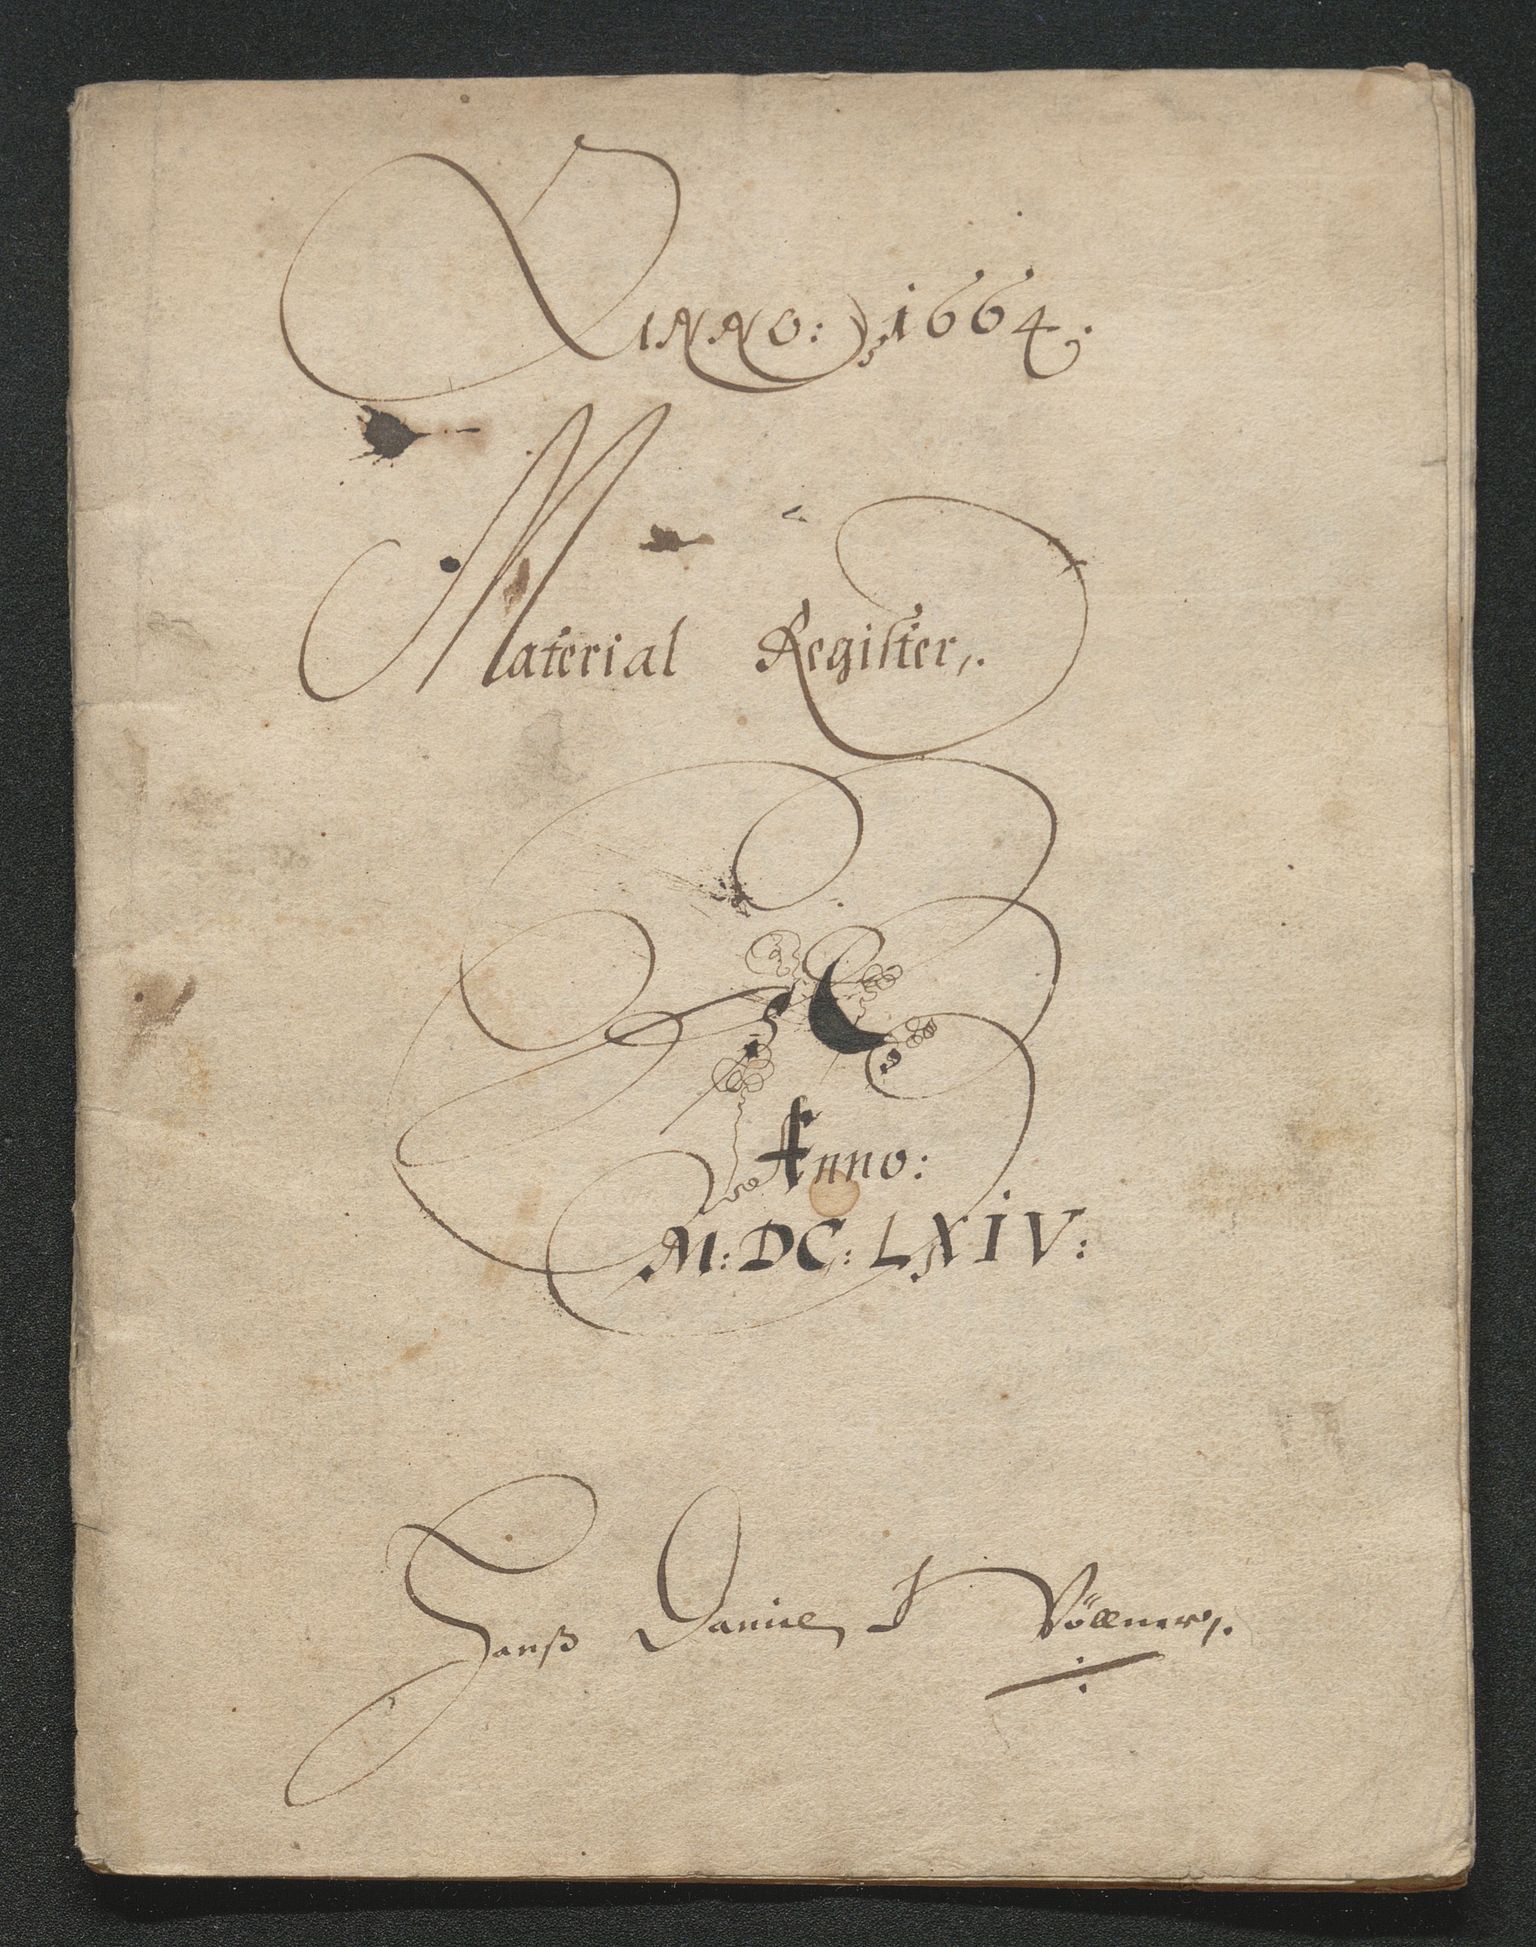 Anno: 1664.
Material Register,.
Anno:
M:DC:LXIV:
Hanß Daniel Völlner,.